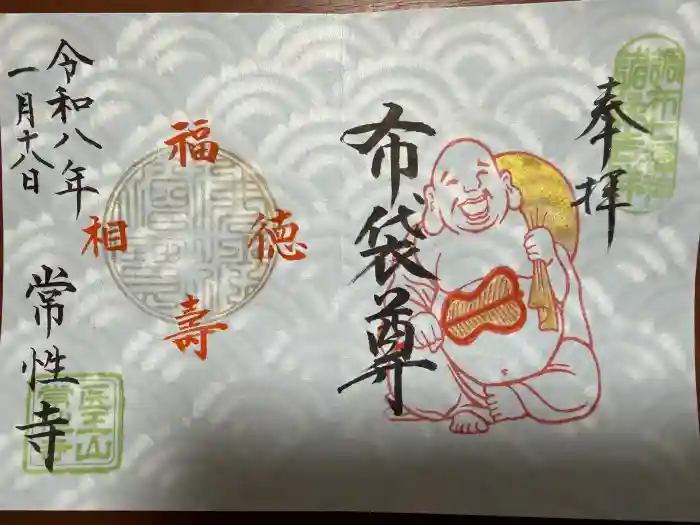 奉拝
布袋尊
福
德
相
壽
令和八年
一月十八日
常性寺